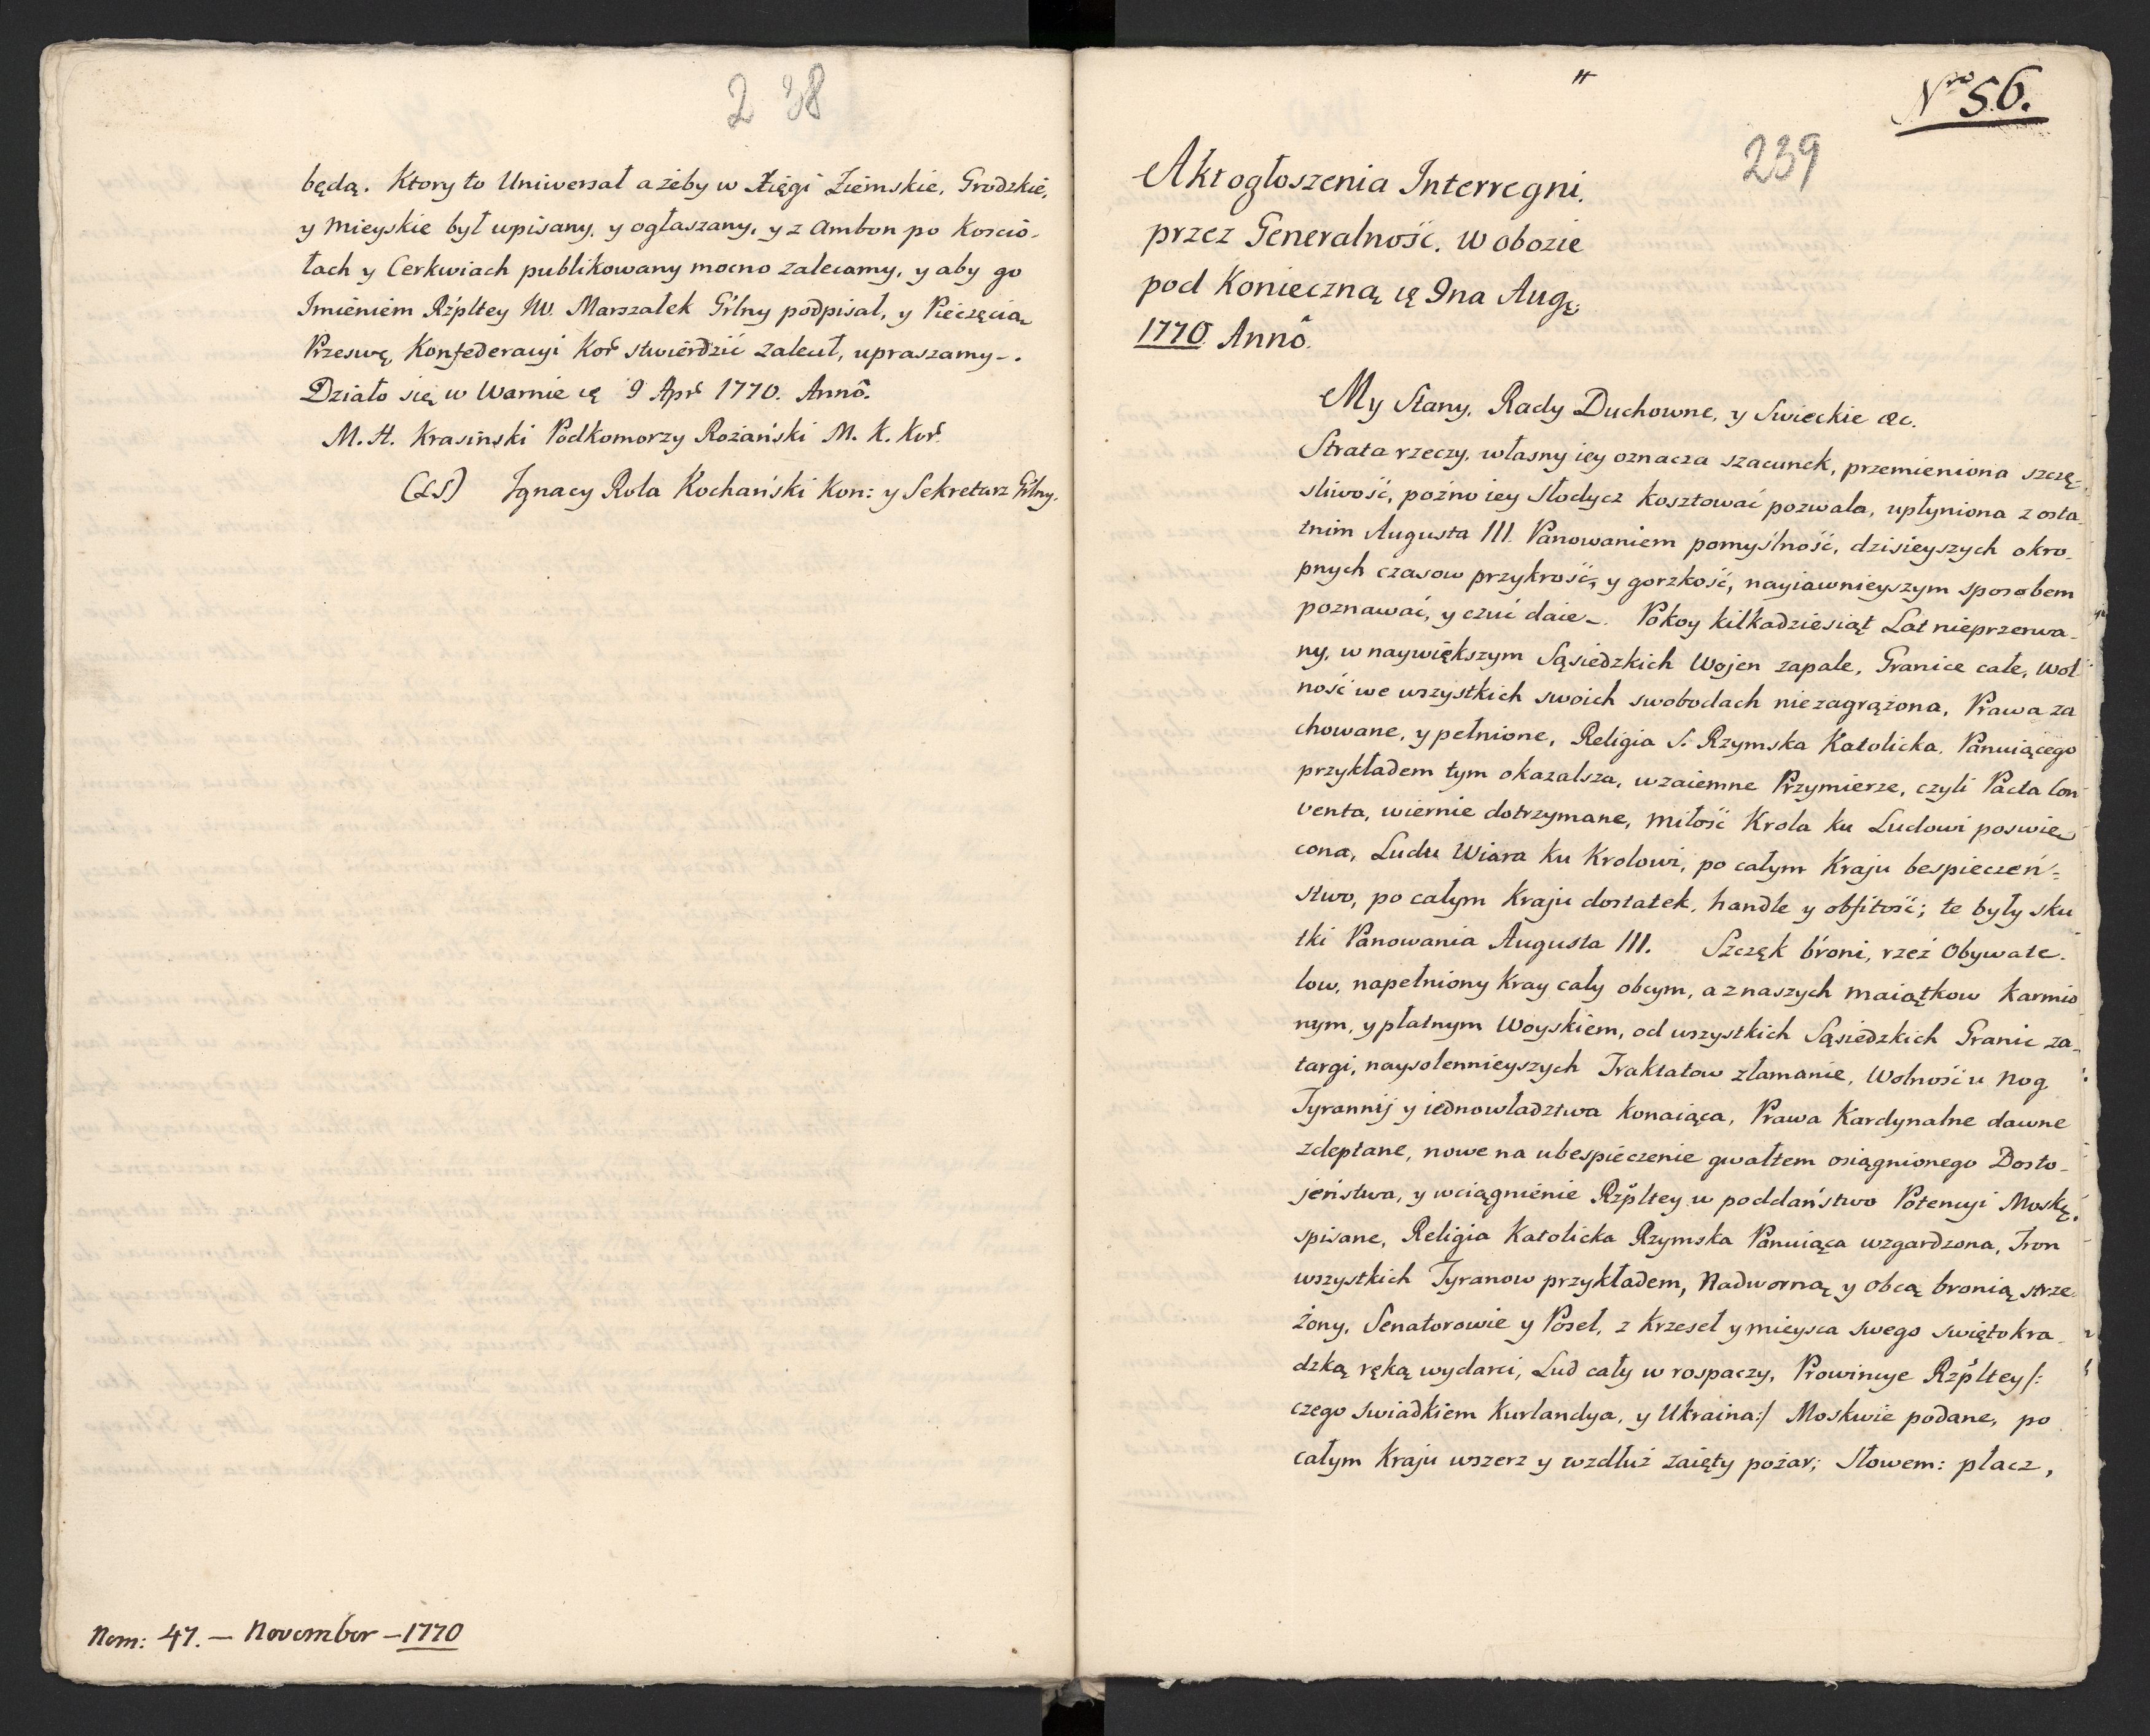 2 38
będą. Ktory to Uniwersał ażeby w Xięgi Ziemskie, Grodzkie,
y Mieyskie był upisany, y ogłaszany, y z Ambon po Kosció-
łach y Cerkwiach publikowany mocno zalecamy, y aby go
Imieniem Rzpltey JW. Marszałek Grlny podpisał, y Pieczęcią
Przeswę Konfederacyi Kor stwierdzić zalecił, upraszamy-.
Działo się w Warnie ię 9 Apr 1770. Annô.
M. H. Krasinski Podkomorzy Rożański M. K. Kor.
(LS) Ignacy Rola Kochański Kon: y Sekretarz Grlny.
Nom: 47. — November — 1770
Nro 56.
239
Akt ogłoszenia Interregni.
przez Generalność. W obozie
pod Konieczną ię 9na Augę
1770 Annô.
My Stany, Rady Duchowne, y Swieckie &c.
Strata rzeczy, własny iey oznacza szacunek, przemieniona szczę-
sliwość, poźno iey słodycz kosztować pozwala, upłyniona z osta-
tnim Augusta III. Panowaniem pomyślność, dzisieyszych okro-
pnych czasow przykrość, y gorzkość, nayiawnieyszym sposobem
poznawać, y czuć daie-. Pokoy kilkadziesiąt Lat nieprzerwa-
ny, w naywiększym Sąsiedzkich Wojen zapale, Granice całe, Wol-
ność we wszystkich swoich swobodach niezagrążona, Prawa za
chowane, y pełnione, Religia S. Rzymska Katolicka, Panuiącego
przykładem tym okazalsza, wzaiemne Przymierze, czyli Pacta Con-
venta, wiernie dotrzymane, miłość Krola ku Ludowi poswię
cona, Ludu Wiara ku Krolowi, po całym Kraju bespieczeń-
stwo, po całym Kraju dostatek, handle y obfitość; te były sku
tki Panowania Augusta III. Szczęk broni, rzeź Obywate-
low, napełniony Kray cały obcym, a z naszych maiątkow karmio
nym, y płatnym Woyskiem, od wszystkich Sąsiedzkich Granic za-
targi, naysolennieyszych Traktatow złamanie, Wolność u nog
Tyrannij y iednowładztwa konaiąca, Prawa Kardynalne dawne
zdeptane, nowe na ubespieczenie gwałtem osiągnionego Dosto-
jeństwa, y wciągnienie Rzpltey w poddaństwo Potencyi Moskę.
spisane, Religia Katolicka Rzymska Panuiąca wzgardzona, Tron
wszystkich Tyranow przykładem, Nadworną y obcą bronią strze-
żony, Senatorowie y Poseł, z Krzeseł y mieysca swego swiętokra-
dzką ręką wydarci, Lud cały w rospaczy, Prowincye Rzpltey /:
czego swiadkiem Kurlandya, y Ukraina:/ Moskwie podane, po
całym Kraju wszerz y wzdłuż zaięty pożar; Słowem: płacz,